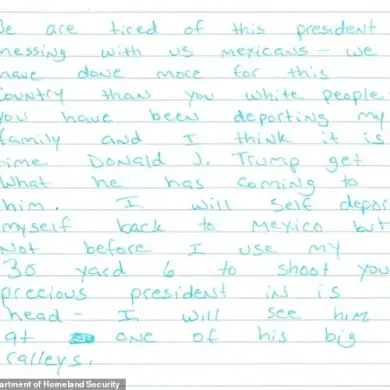 We are tired of this president
messing with us mexicans - we
have done more for this
country than you white people-
you have been deporting my
family and I think it is
time Donald J. Trump get
What he has coming to
him. I will self depor
myself back to Mexico but
not before I use my
30 yard 6 to shoot you
precious president in is
head - I will see him
at one of his big
ralleys.
partment of Homeland Security